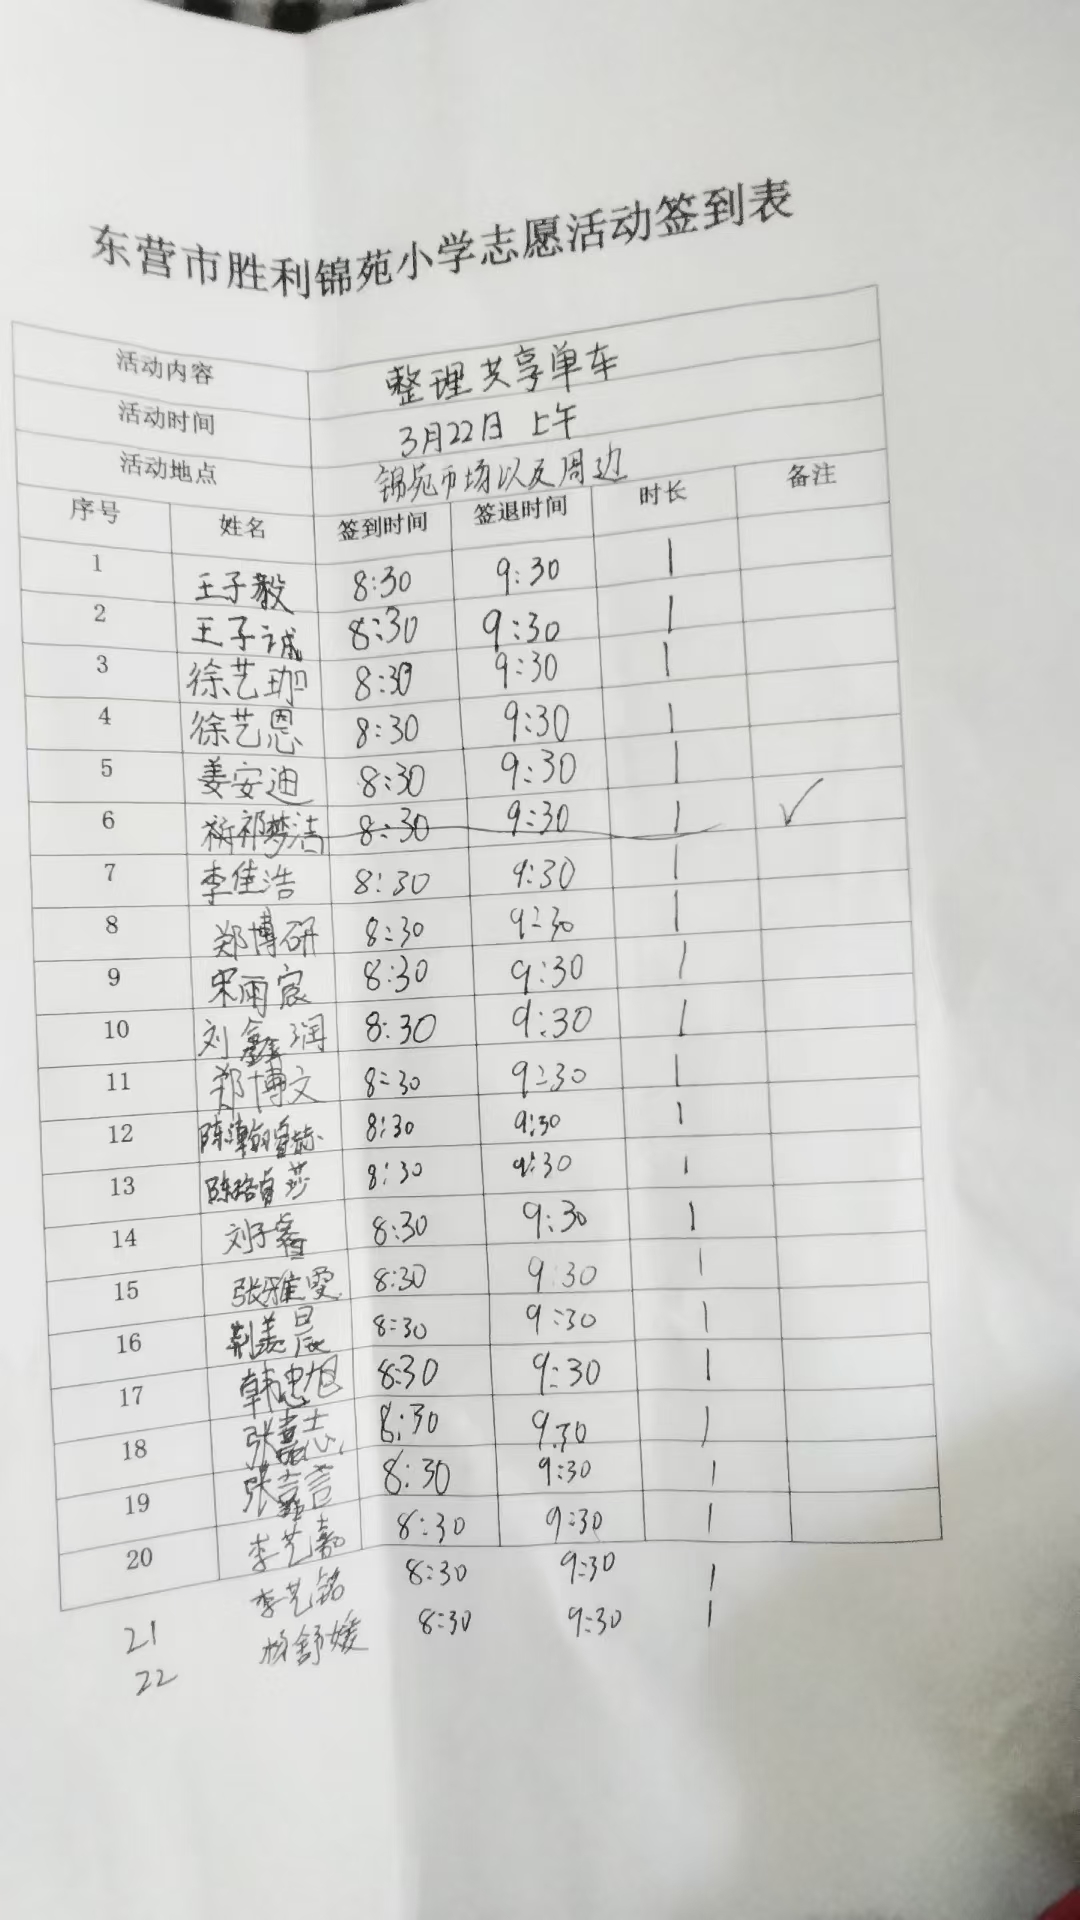 东营市胜利锦苑小学志愿活动签到表
活动内容 整理共享单车
活动时间 3月22日 上午
活动地点 锦苑市场以及周边
序号 姓名 签到时间 签退时间 时长 备注
1 王子毅 8:30 9:30 1
2 王子诚 8:30 9:30 1
3 徐艺珈 8:30 9:30 1
4 徐艺恩 8:30 9:30 1
5 姜安迪 8:30 9:30 1
6 祁梦洁 8:30 9:30 1 ✓
7 李佳浩 8:30 9:30 1
8 郑博研 8:30 9:30 1
9 宋雨宸 8:30 9:30 1
10 刘鑫润 8:30 9:30 1
11 郑博文 8:30 9:30 1
12 8:30 9:30 1
13 8:30 9:30 1
14 刘子睿 8:30 9:30 1
15 张雅雯 8:30 9:30 1
16 荆美晨 8:30 9:30 1
17 韩忠旭 8:30 9:30 1
18 张嘉志 8:30 9:30 1
19 8:30 9:30 1
20 李艺嘉 8:30 9:30 1
21 李艺铭 8:30 9:30 1
22 杨舒媛 8:30 9:30 1